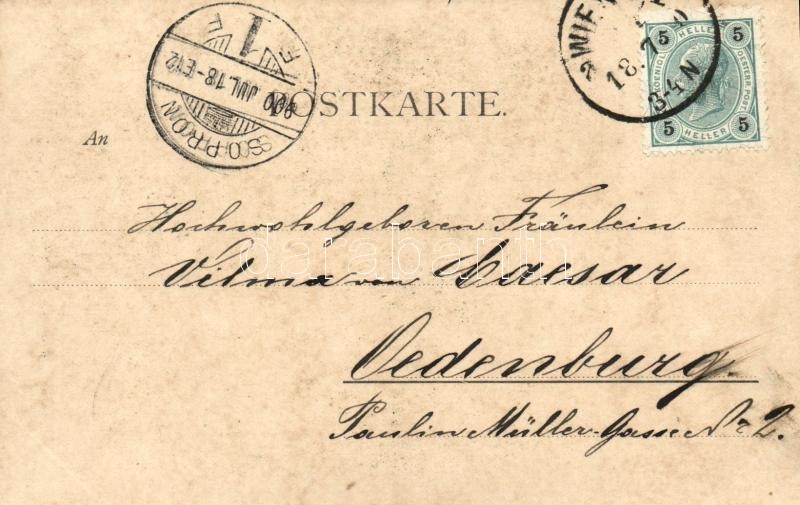 POSTKARTE.
An
Hochwohlgeboren Fräulein
Vilma von Caesar
Oedenburg.
Paulin Müller-Gasse Nr 2.
SOPRON
900 JUL 18 - E12
1
F F
WIEN
18.7.
8-9N
5 HELLER 5
KOENIGL.
OESTERR. POST
5 HELLER 5
databanth